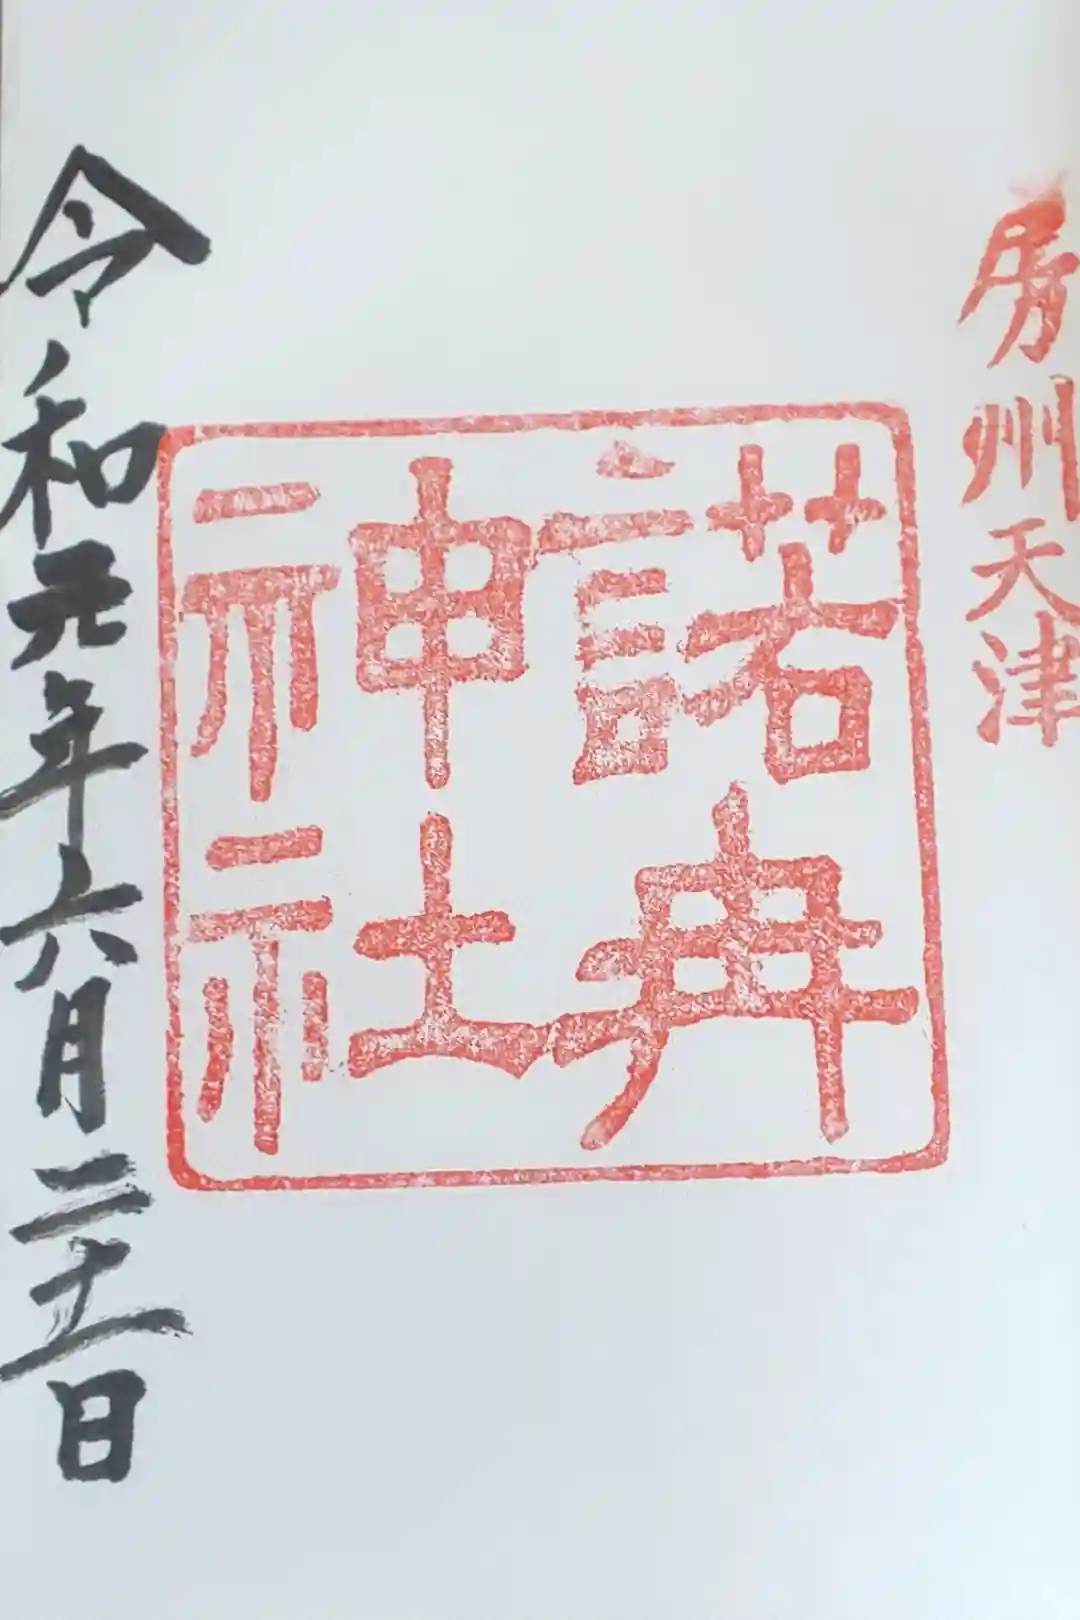 房州天津
諾冉
神社
令和元年六月二十一日